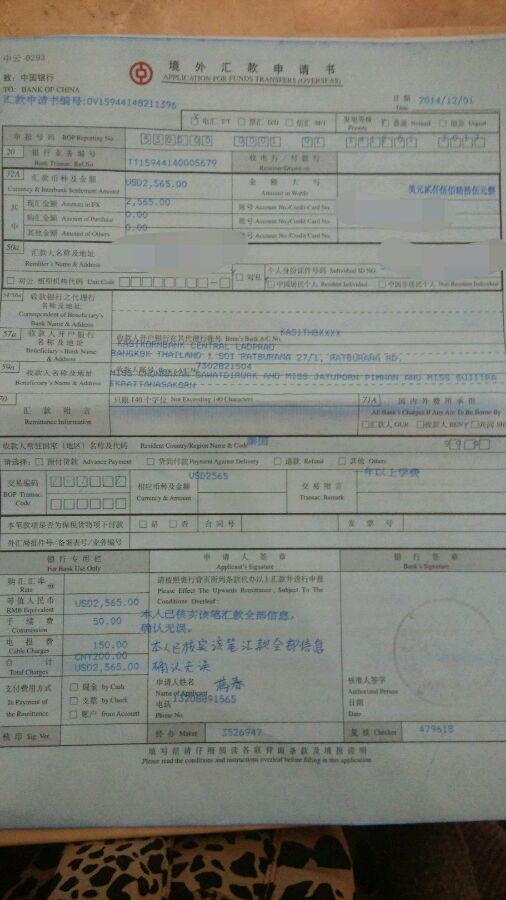 中云 0293
致：中国银行
TO: BANK OF CHINA
境外汇款申请书
APPLICATION FOR FUNDS TRANSFERS (OVERSEAS)
汇款申请书编号:OV15944148211396
日期 2014/12/01
Date
电汇 T/T 票汇 D/D 信汇 M/T 发电等级 普通 Normal 加急 Urgent
Priority
申报号码 BOP Reporting No.
20 银行业务编号 TT15944140005679 收电行/付款行
Bank Transac. Ref.No. Receiver/Drawn on
32A 汇款币种及金额 USD2,565.00 金额大写 美元贰仟伍佰陆拾伍元整
Currency & Interbank Settlement Amount Amount in Words
其中 现汇金额 Amount in FX 2,565.00 账号 Account No./Credit Card No.
购汇金额 Amount of Purchase 0.00 账号 Account No./Credit Card No.
其他金额 Amount of Others 0.00 账号 Account No./Credit Card No.
50a 汇款人名称及地址
Remitter's Name & Address
个人身份证件号码 Individual ID NO.
对公 组织机构代码 Unit Code 对私 中国居民个人 Resident Individual 中国非居民个人 Non-Resident Individual
54/56a 收款银行之代理行
名称及地址
Correspondent of Beneficiary's
Bank Name & Address
57a 收款人开户银行 收款人开户银行在其代理行账号 Bene's Bank A/C No. KASITHBKXXX
名称及地址 KASIKORNBANK CENTRAL LADPRAO
Beneficiary's Bank Name BANGKOK THAILAND 1 SOI RATBURANA 27/1, RATBURANA RD,
& Address
59a 收款人名称及地址 收款人账号 Bene's A/C No. 7302821504
Beneficiary's Name & Address
70 汇款附言 只限140个字位 Not Exceeding 140 Characters 71A 国内外费用承担
Remittance Information All Bank's Charges If Any Are To Be Borne By
汇款人 OUR 收款人 BEN 共同 SHA
收款人常驻国家（地区）名称及代码 Resident Country/Region Name & Code 泰国
请选择： 预付货款 Advance Payment 货到付款 Payment Against Delivery 退款 Refund 其他 Others
交易编码 相应币种及金额 USD2565 交易附言 一年以上学费
BOP Transac. Code Currency & Amount Transac. Remark
本笔款项是否为保税货物项下付款 是 否 合同号 发票号
外汇局批件号/备案表号/业务编号
银行专用栏 申请人签章 银行签章
For Bank Use Only Applicant's Signature Bank's Signature
购汇汇率 请按照贵行背页所列条款代办以上汇款并进行申报
Rate Please Effect The Upwards Remittance, Subject To The
等值人民币 USD2,565.00 Conditions Overleaf:
RMB Equivalent
手续费 50.00 本人已核实该笔汇款全部信息，
Commission 确认无误。
电报费 150.00 本人已核实该笔汇款全部信息
Cable Charges
合计 CNY200.00 确认无误
Total Charges USD2,565.00
支付费用方式 现金 by Cash 申请人姓名 核准人签字
In Payment of 支票 by Check Name of Applicant Authorized Person
the Remittance 账户 from Account 电话 13208891565 日期
Phone No. Date
核印 Sig. Ver. 经办 Maker 3526947 复核 Checker 479618
填写前请仔细阅读各联背面条款及填报说明
Please read the conditions and instructions overleaf before filling in this application.